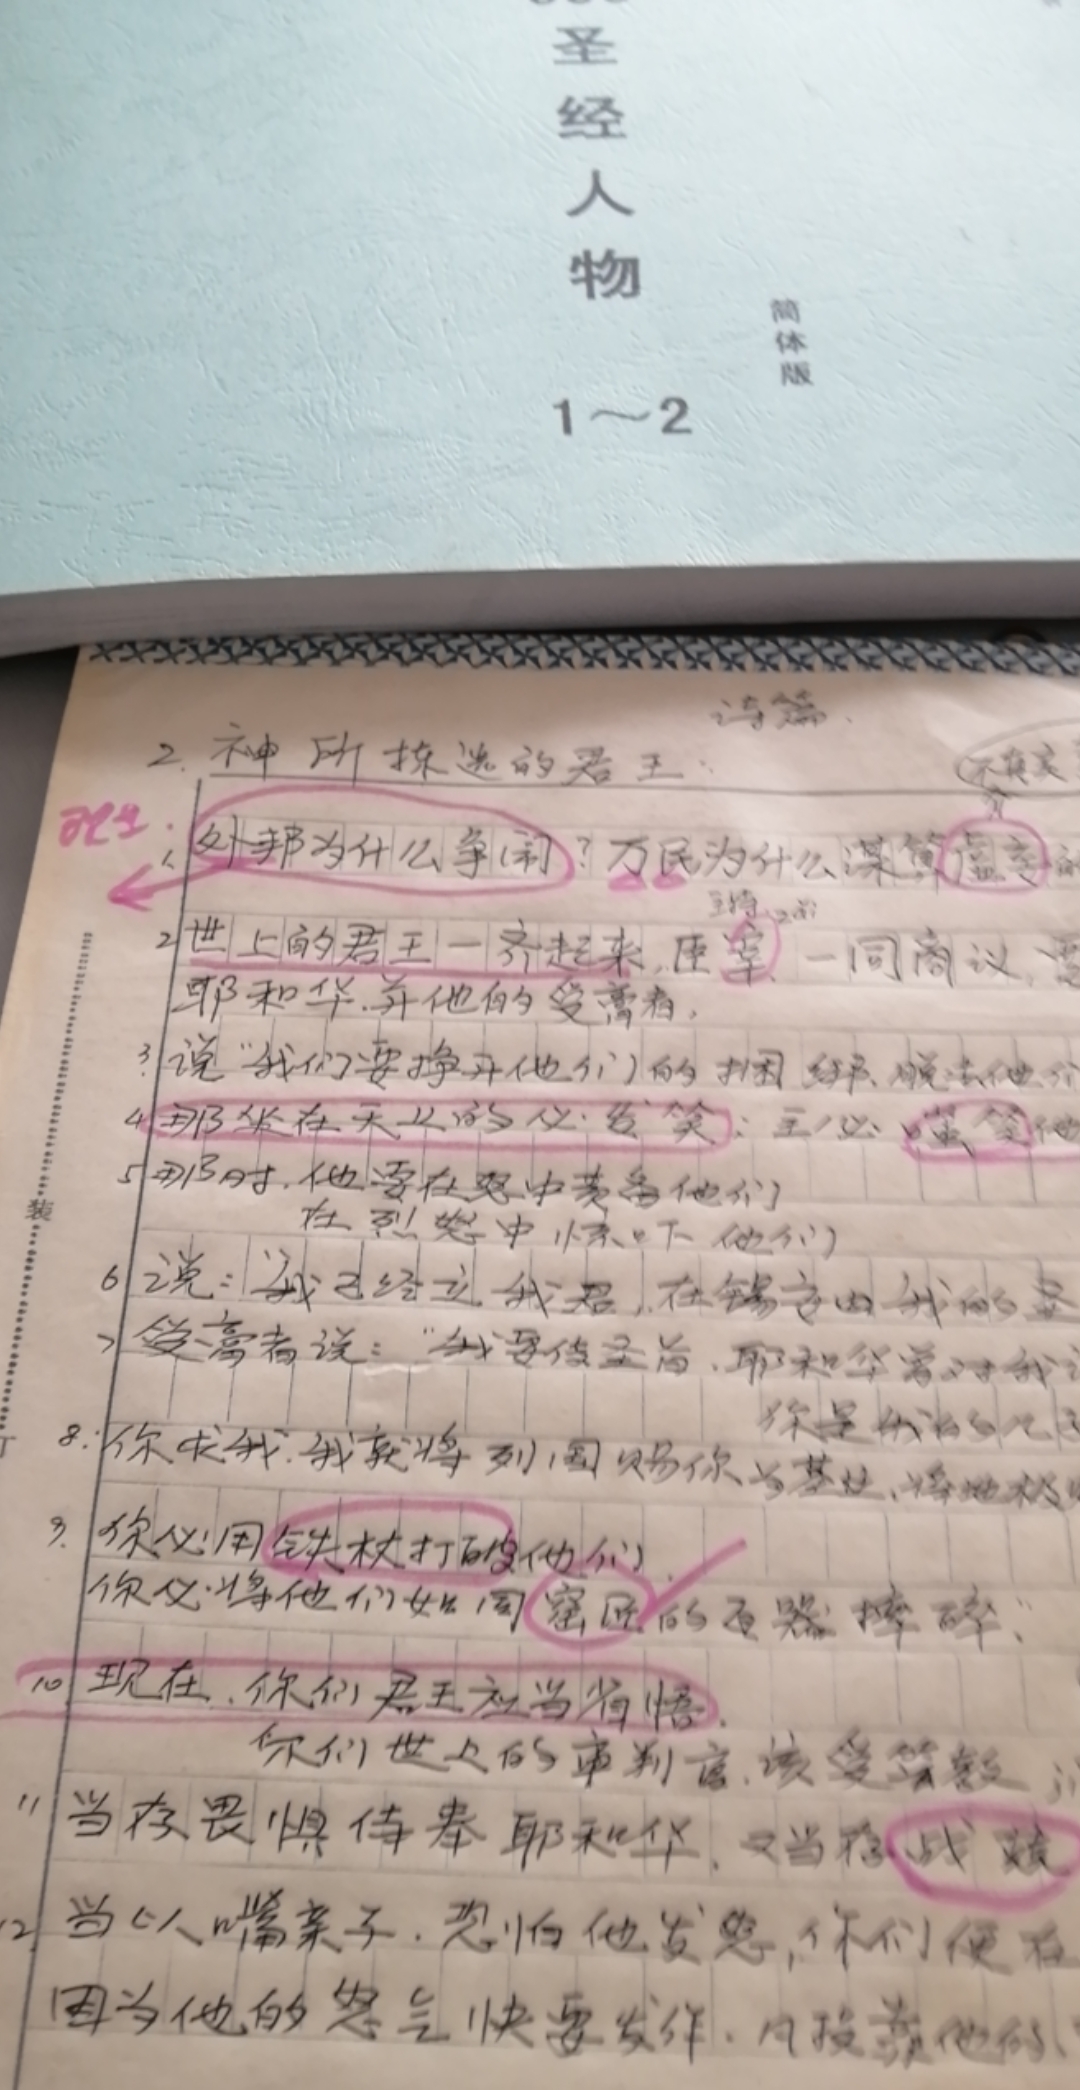 圣经人物
简体版
1～2
诗篇.
2. 神所拣选的君王:
1. 外邦为什么争闹? 万民为什么谋算虚妄的
2 世上的君王一齐起来, 臣宰. 一同商议,
耶和华.并他的受膏者,
3. 说"我们要挣开他们的捆绑. 脱去他们
4 那坐在天上的必发笑: 主必嗤笑他
5 那时. 他要在怒中责备他们
在烈怒中惊吓他们
6 说: "我已经立我君, 在锡安山我的圣
7 受膏者说: "我要传圣旨. 耶和华曾对我说
你是我的儿子
8. 你求我. 我就将列国赐你为基业, 将地极
9. 你必用铁杖打破他们
你必将他们如同窑匠的瓦器摔碎."
10 现在. 你们君王应当省悟.
你们世上的审判官. 该受管教
11 当存畏惧侍奉耶和华. 又当存战兢
12. 当以嘴亲子. 恐怕他发怒, 你们便在
因当他的怒气快要发作. 凡投靠他的
装
订